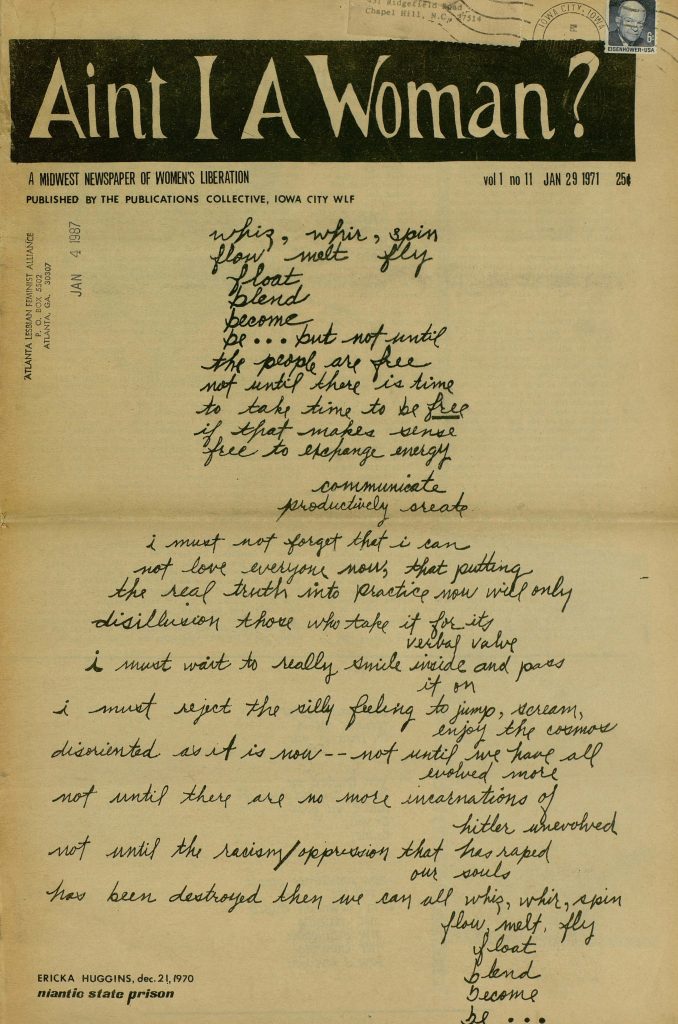 Ridgefield Road
Chapel Hill, N.C. 27514
IOWA CITY, IOWA
6¢
EISENHOWER·USA
Aint I A Woman?
A MIDWEST NEWSPAPER OF WOMEN'S LIBERATION
vol 1 no 11 JAN 29 1971 25¢
PUBLISHED BY THE PUBLICATIONS COLLECTIVE, IOWA CITY WLF
ATLANTA LESBIAN FEMINIST ALLIANCE
P. O. BOX 5502
ATLANTA, GA. 30307
JAN 4 1987
whiz, whir, spin
flow melt fly
float
blend
become
be... but not until
the people are free
not until there is time
to take time to be free
if that makes sense
free to exchange energy
communicate
productively create
i must not forget that i can
not love everyone now, that putting
the real truth into practice now will only
disillusion those who take it for its
verbal valve
i must wait to really smile inside and pass
it on
i must reject the silly feeling to jump, scream,
enjoy the cosmos
disoriented as it is now -- not until we have all
evolved more
not until there are no more incarnations of
hitler unevolved
not until the racism/oppression that has raped
our souls
has been destroyed then we can all whiz, whir, spin
flow, melt, fly
float
blend
become
be ...
ERICKA HUGGINS, dec. 21, 1970
niantic state prison